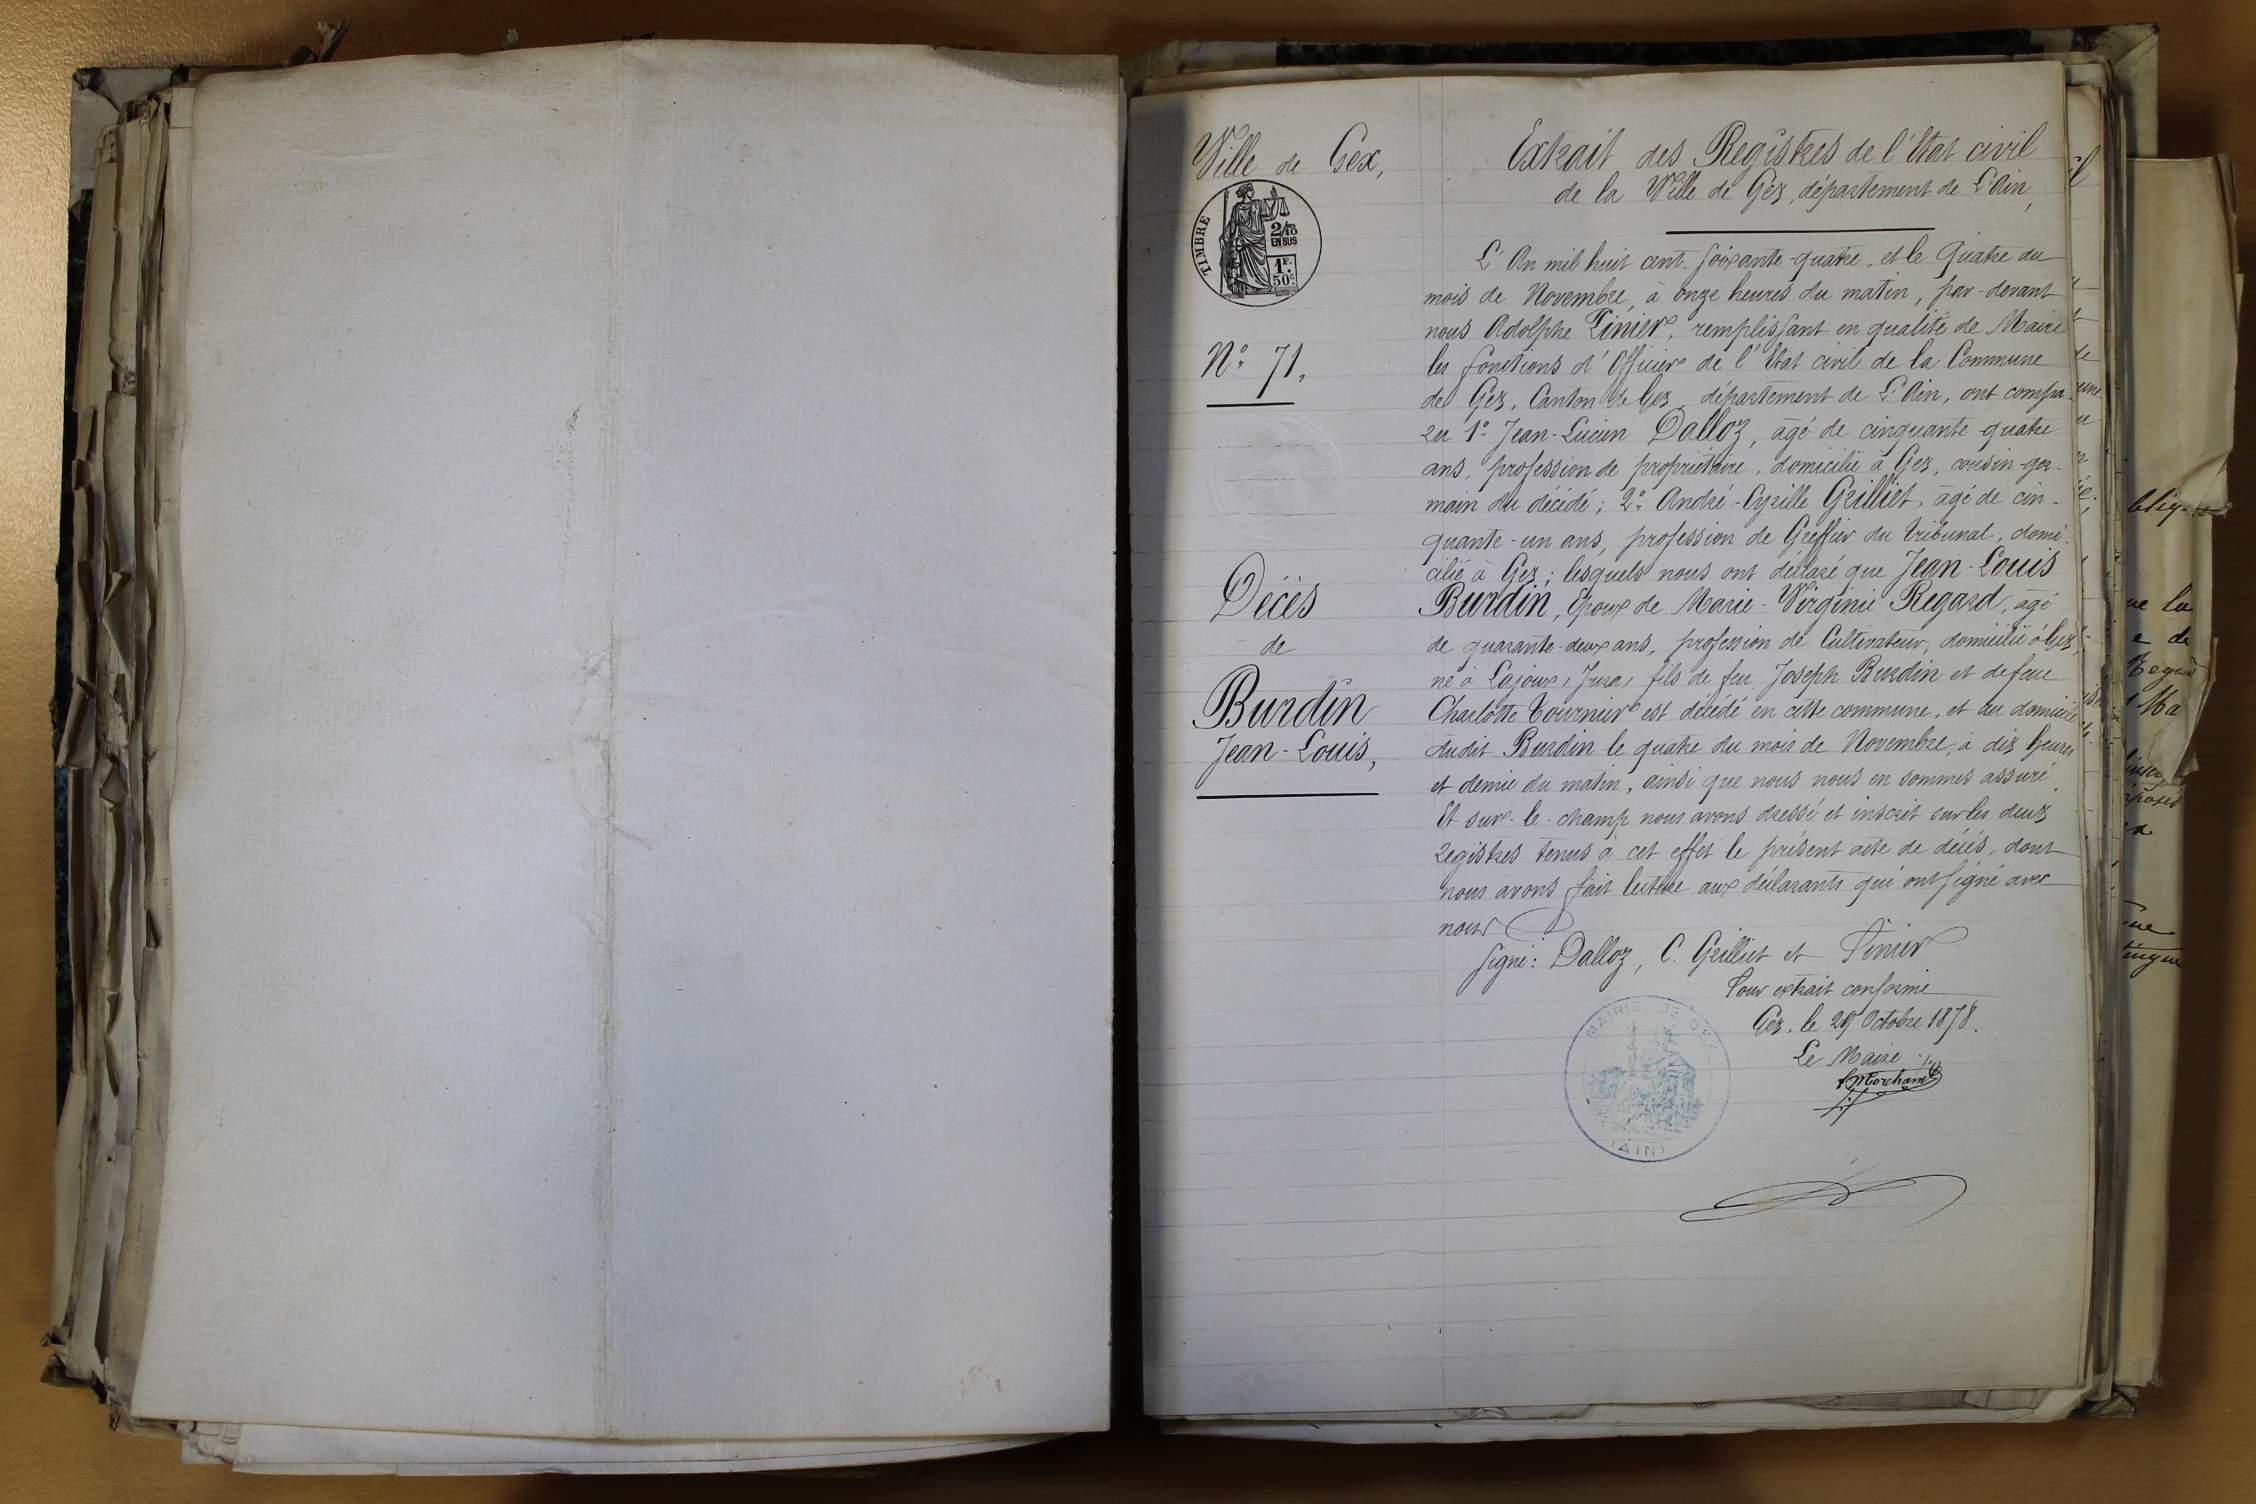 Ville de Gex,
TIMBRE
2/10
EN SUS
1F.
50c
N° 71.
Décès
de
Burdin
Jean-Louis,
Extrait des Registres de l'Etat civil
de la Ville de Gex, département de L'Ain,
L'An mil huit cent soixante-quatre, et le Quatre du
mois de Novembre, à onze heures du matin, par-devant
nous Adolphe Pinier, remplissant en qualité de Maire
les fonctions d'Officier de l'Etat civil de la Commune
de Gex, Canton de Gex, département de L'Ain, ont compa-
ru 1° Jean-Lucien Dalloz, agé de cinquante-quatre
ans, profession de propriétaire, domicilié à Gex, cousin-ger-
main du décédé; 2° André-Cyrille Grilliet, âgé de cin-
quante-un ans, profession de Greffier du tribunal, domi-
cilié à Gex; lesquels nous ont déclaré que Jean-Louis
Burdin, Epoux de Marie-Virginie Regard, agé
de quarante-deux ans, profession de Cultivateur, domicilié à Gex,
né à Lajoux, Jura, fils de feu Joseph Burdin et de feue
Charlotte Tournier est décédé en cette commune, et au domicile
dudit Burdin le quatre du mois de Novembre, à dix heures
et demie du matin, ainsi que nous nous en sommes assuré.
Et sur-le-champ nous avons dressé et inscrit sur les deux
registres tenus à cet effet le présent acte de décès, dont
nous avons fait lecture aux déclarants qui ont signé avec
nous
Signé: Dalloz, C. Grilliet et Pinier
Pour extrait conforme
Gex, le 29 Octobre 1878.
Le Maire
MAIRIE DE GEX
(AIN)